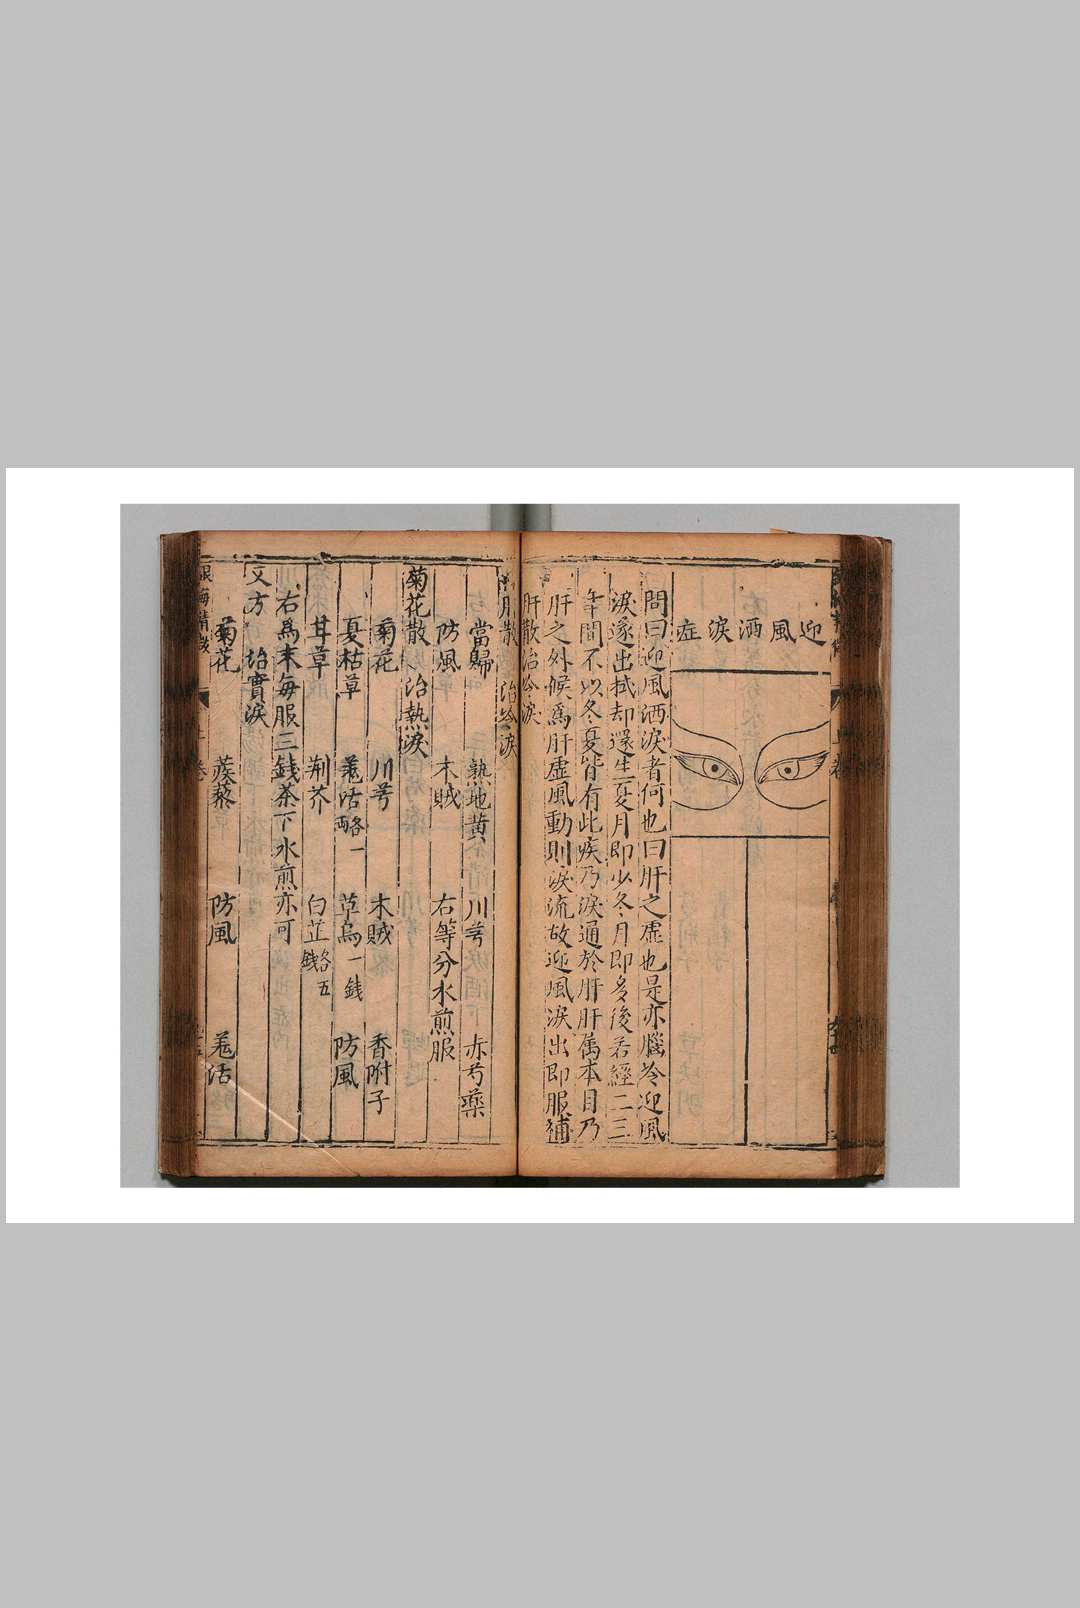 迎風洒淚症
問曰迎風洒淚者何也曰肝之虛也是亦腦冷迎風
淚遂出拭却還生夏月即少冬月即多後若經二三
年間不以冬夏皆有此疾乃淚通於肝肝属本目乃
肝之外候爲肝虛風動則淚流故迎風淚出即服補
肝散治冷淚
肝散 治冷淚
當歸 熟地黄 川芎 赤芍藥
防風 木賊 右等分水煎服
菊花散 治熱淚
菊花 川芎 木賊 香附子
夏枯草 羗活各一両 草烏一錢 防風
甘草 荆芥 白芷各五錢
右爲末每服三錢茶下水煎亦可
又方 治實淚
菊花 蒺藜 防風 羗活
眼海精微 上卷